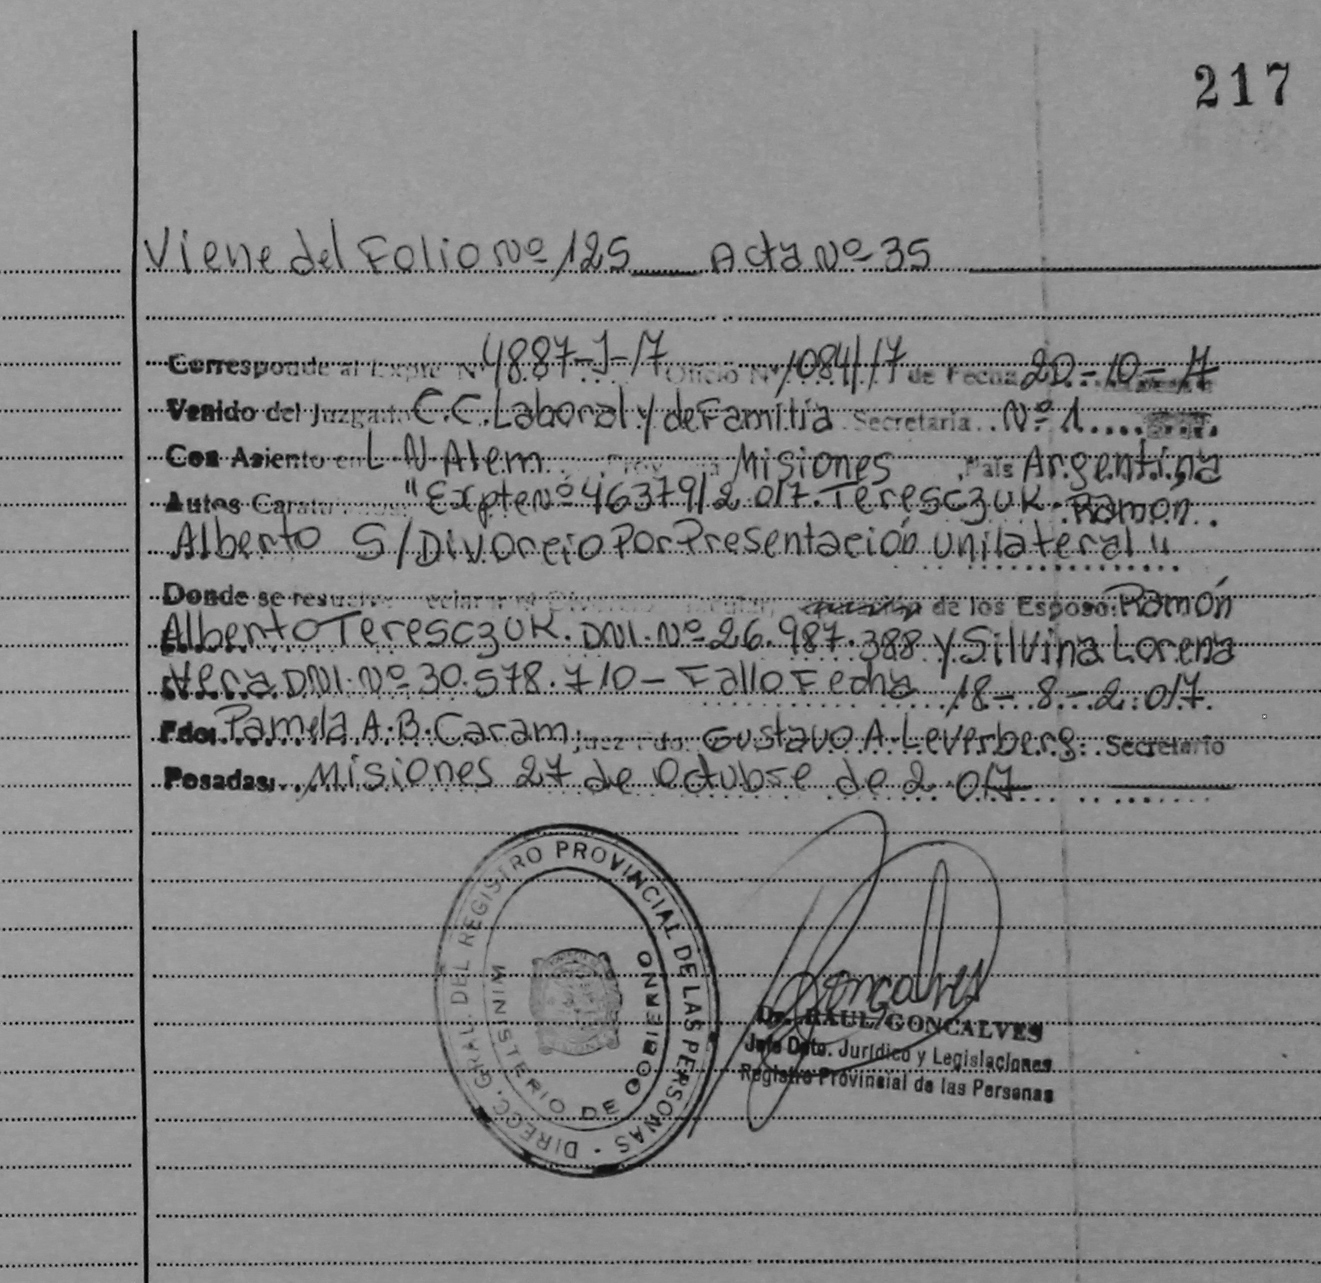 217
Viene del Folio Nº 125 Acta Nº 35
Corresponde al Expte Nº 4887-J-17 Oficio Nº 1084/17 de Fecha 20-10-17
Venido del Juzgado C.C. Laboral y de Familia Secretaria Nº 1
Con Asiento en L N Alem Provincia Misiones Pais Argentina
Autos "Expte Nº 46379/2.017. Teresczuk. Ramon
Alberto S/Divorcio Por Presentación unilateral"
Donde se resuelve Divorcio de los Esposo: Ramón
Alberto Teresczuk. DNI. Nº 26.987.388 y Silvina Lorena
Vera DNI. Nº 30.578.710 - Fallo Fecha 18-8-2.017.
Fdo: Pamela A.B. Caram Juez Fdo: Gustavo A. Leverberg. Secretario
Posadas: Misiones 27 de Octubre de 2.017
DIRECC. GRAL. DEL REGISTRO PROVINCIAL DE LAS PERSONAS -
MINISTERIO DE GOBIERNO
Goncalves
Dr. RAUL GONCALVES
Jefe Dpto. Jurídico y Legislaciones
Registro Provincial de las Personas